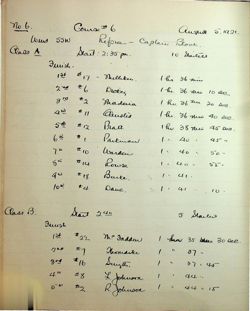 No. 6. Course #6 August 5, 1921.
Wind SSW Referee - Captain
Class A Start 2.35 p.m. 10 Starters
Finish.
1st #17 - 1 hr 36 min
2nd #6 1 hr 36 min 10 sec.
3rd #2 1 hr 36 min 20 sec
4th #11 1 hr 36 min 40 sec.
5th #12 Pratt 1 hr 38 min 45 sec
6th #1 Parkman 1 - 40 - 45 -
7th #10 Warden 1 - 40 - 50 -
8th #14 1 - 40 - 55 -
9th #18 Burke. 1 - 41.
10th #4 1 - 41 - 10 -
Class B. Start 2.40 5 Starters
Finish
1st #22 Mc Fadden 1 hour 35 min 30 sec.
2nd #9 1 " 37 -
3rd #10 Smyth 1 " 37 - 45
4th #8 L. Johnson 1 " 44 -
5th #2 R. Johnson 1 " 44 - 15